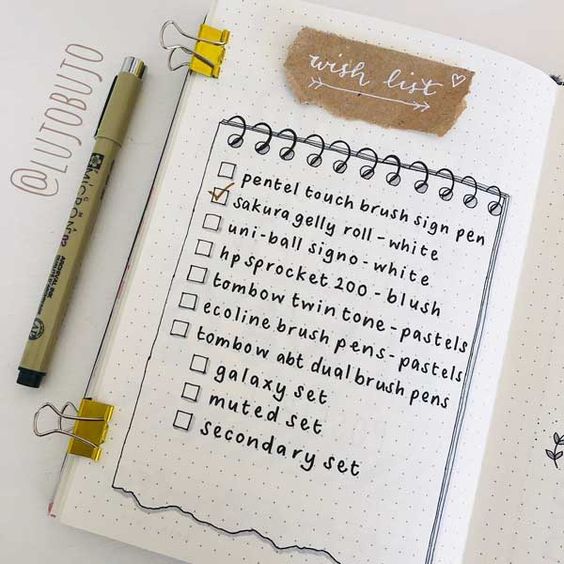 @LUJOBUJO
MICRON
wish list
pentel touch brush sign pen
sakura gelly roll - white
uni-ball signo - white
hp sprocket 200 - blush
tombow twin tone - pastels
ecoline brush pens - pastels
tombow abt dual brush pens
galaxy set
muted set
secondary set